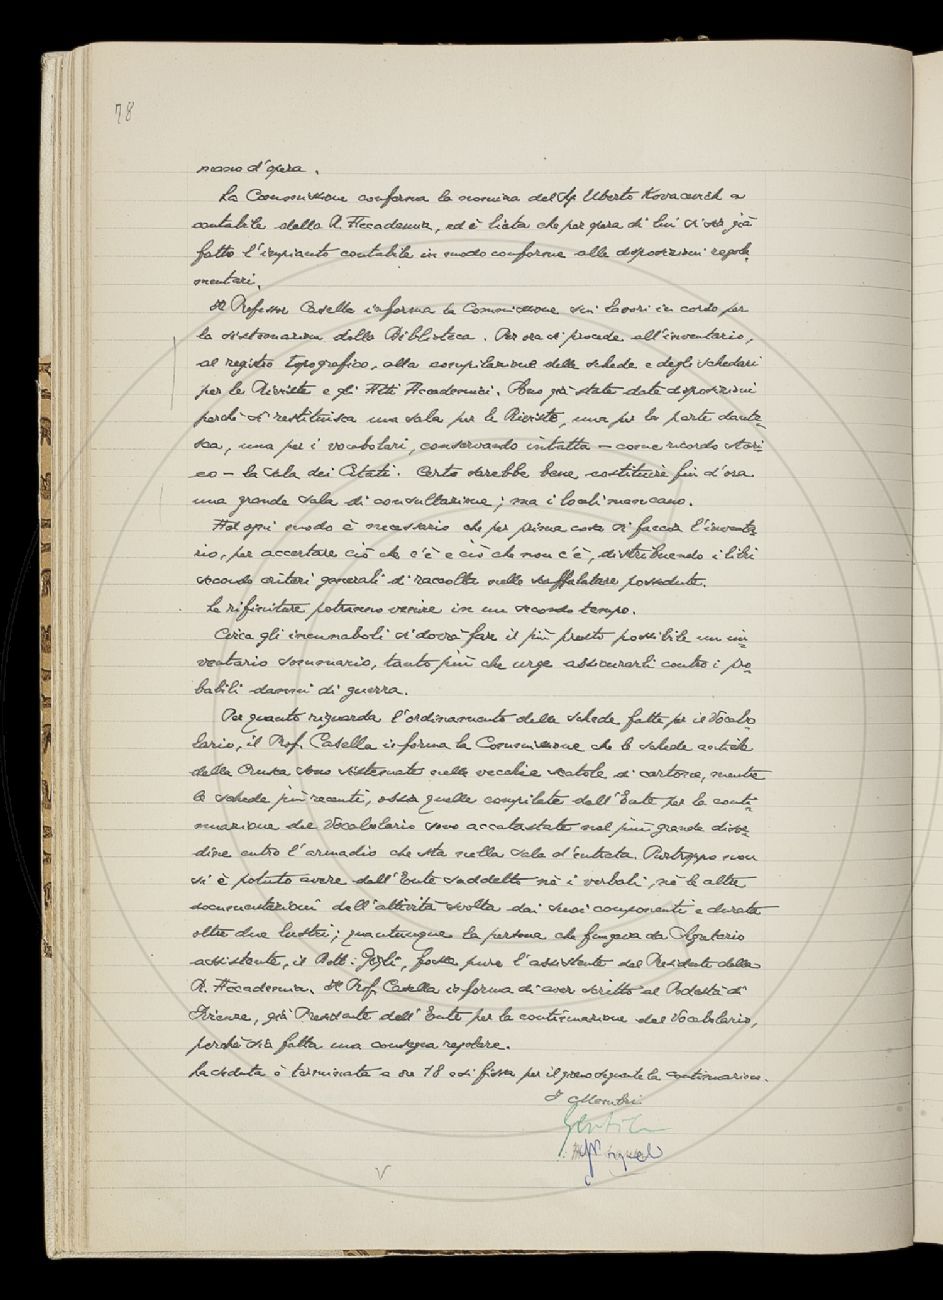 78
mano d'opera.
La Commissione conferma la nomina del Sig. Uberto Kovacevich a
contabile della R. Accademia, ed è lieta che per opera di lui si sia già
fatto l'impianto contabile in modo conforme alle disposizioni regola-
mentari.
Il Professor Casella informa la Commissione sui lavori in corso per
la sistemazione della Biblioteca. Per ora si procede all'inventario,
al registro topografico, alla compilazione delle schede e degli schedari
per le Riviste e gli Atti Accademici. Sono già state date disposizioni
perchè si restituisca una sala per le Riviste, una per la parte dante-
sca, una per i vocabolari, conservando intatta – come ricordo stori-
co – la sala dei Citati. Certo sarebbe bene costituire fin d'ora
una grande sala di consultazione; ma i locali mancano.
Ad ogni modo è necessario che per prima cosa si faccia l'inventa-
rio, per accertare ciò che c'è e ciò che non c'è, distribuendo i libri
secondo criteri generali di raccolta nelle scaffalature possedute.
Le rifiniture potranno venire in un secondo tempo.
Circa gli incunaboli si dovrà fare il più presto possibile un in-
ventario sommario, tanto più che urge assicurarli contro i pro-
babili danni di guerra.
Per quanto riguarda l'ordinamento delle schede fatte per il Vocabo-
lario, il Prof. Casella informa la Commissione che le schede antiche
della Crusca sono sistemate nelle vecchie scatole di cartone, mentre
le schede più recenti, ossia quelle compilate dall'Ente per la conti-
nuazione del Vocabolario sono accatastate nel più grande disor-
dine entro l'armadio che sta nella sala d'entrata. Purtroppo non
si è potuto avere dall'Ente suddetto nè i verbali, nè le altre
documentazioni dell'attività svolta dai suoi componenti e durata
oltre due lustri; quantunque la persona che fungeva da Segretario
assistente, il Dott. Gigli, fosse pure l'assistente del Presidente della
R. Accademia. Il Prof. Casella informa di aver scritto al Podestà di
Firenze, già Presidente dell'Ente per la continuazione del Vocabolario,
perchè sia fatta una consegna regolare.
La seduta è terminata a ore 18 e si fissa per il giorno seguente la continuazione.
I Membri
Gentile